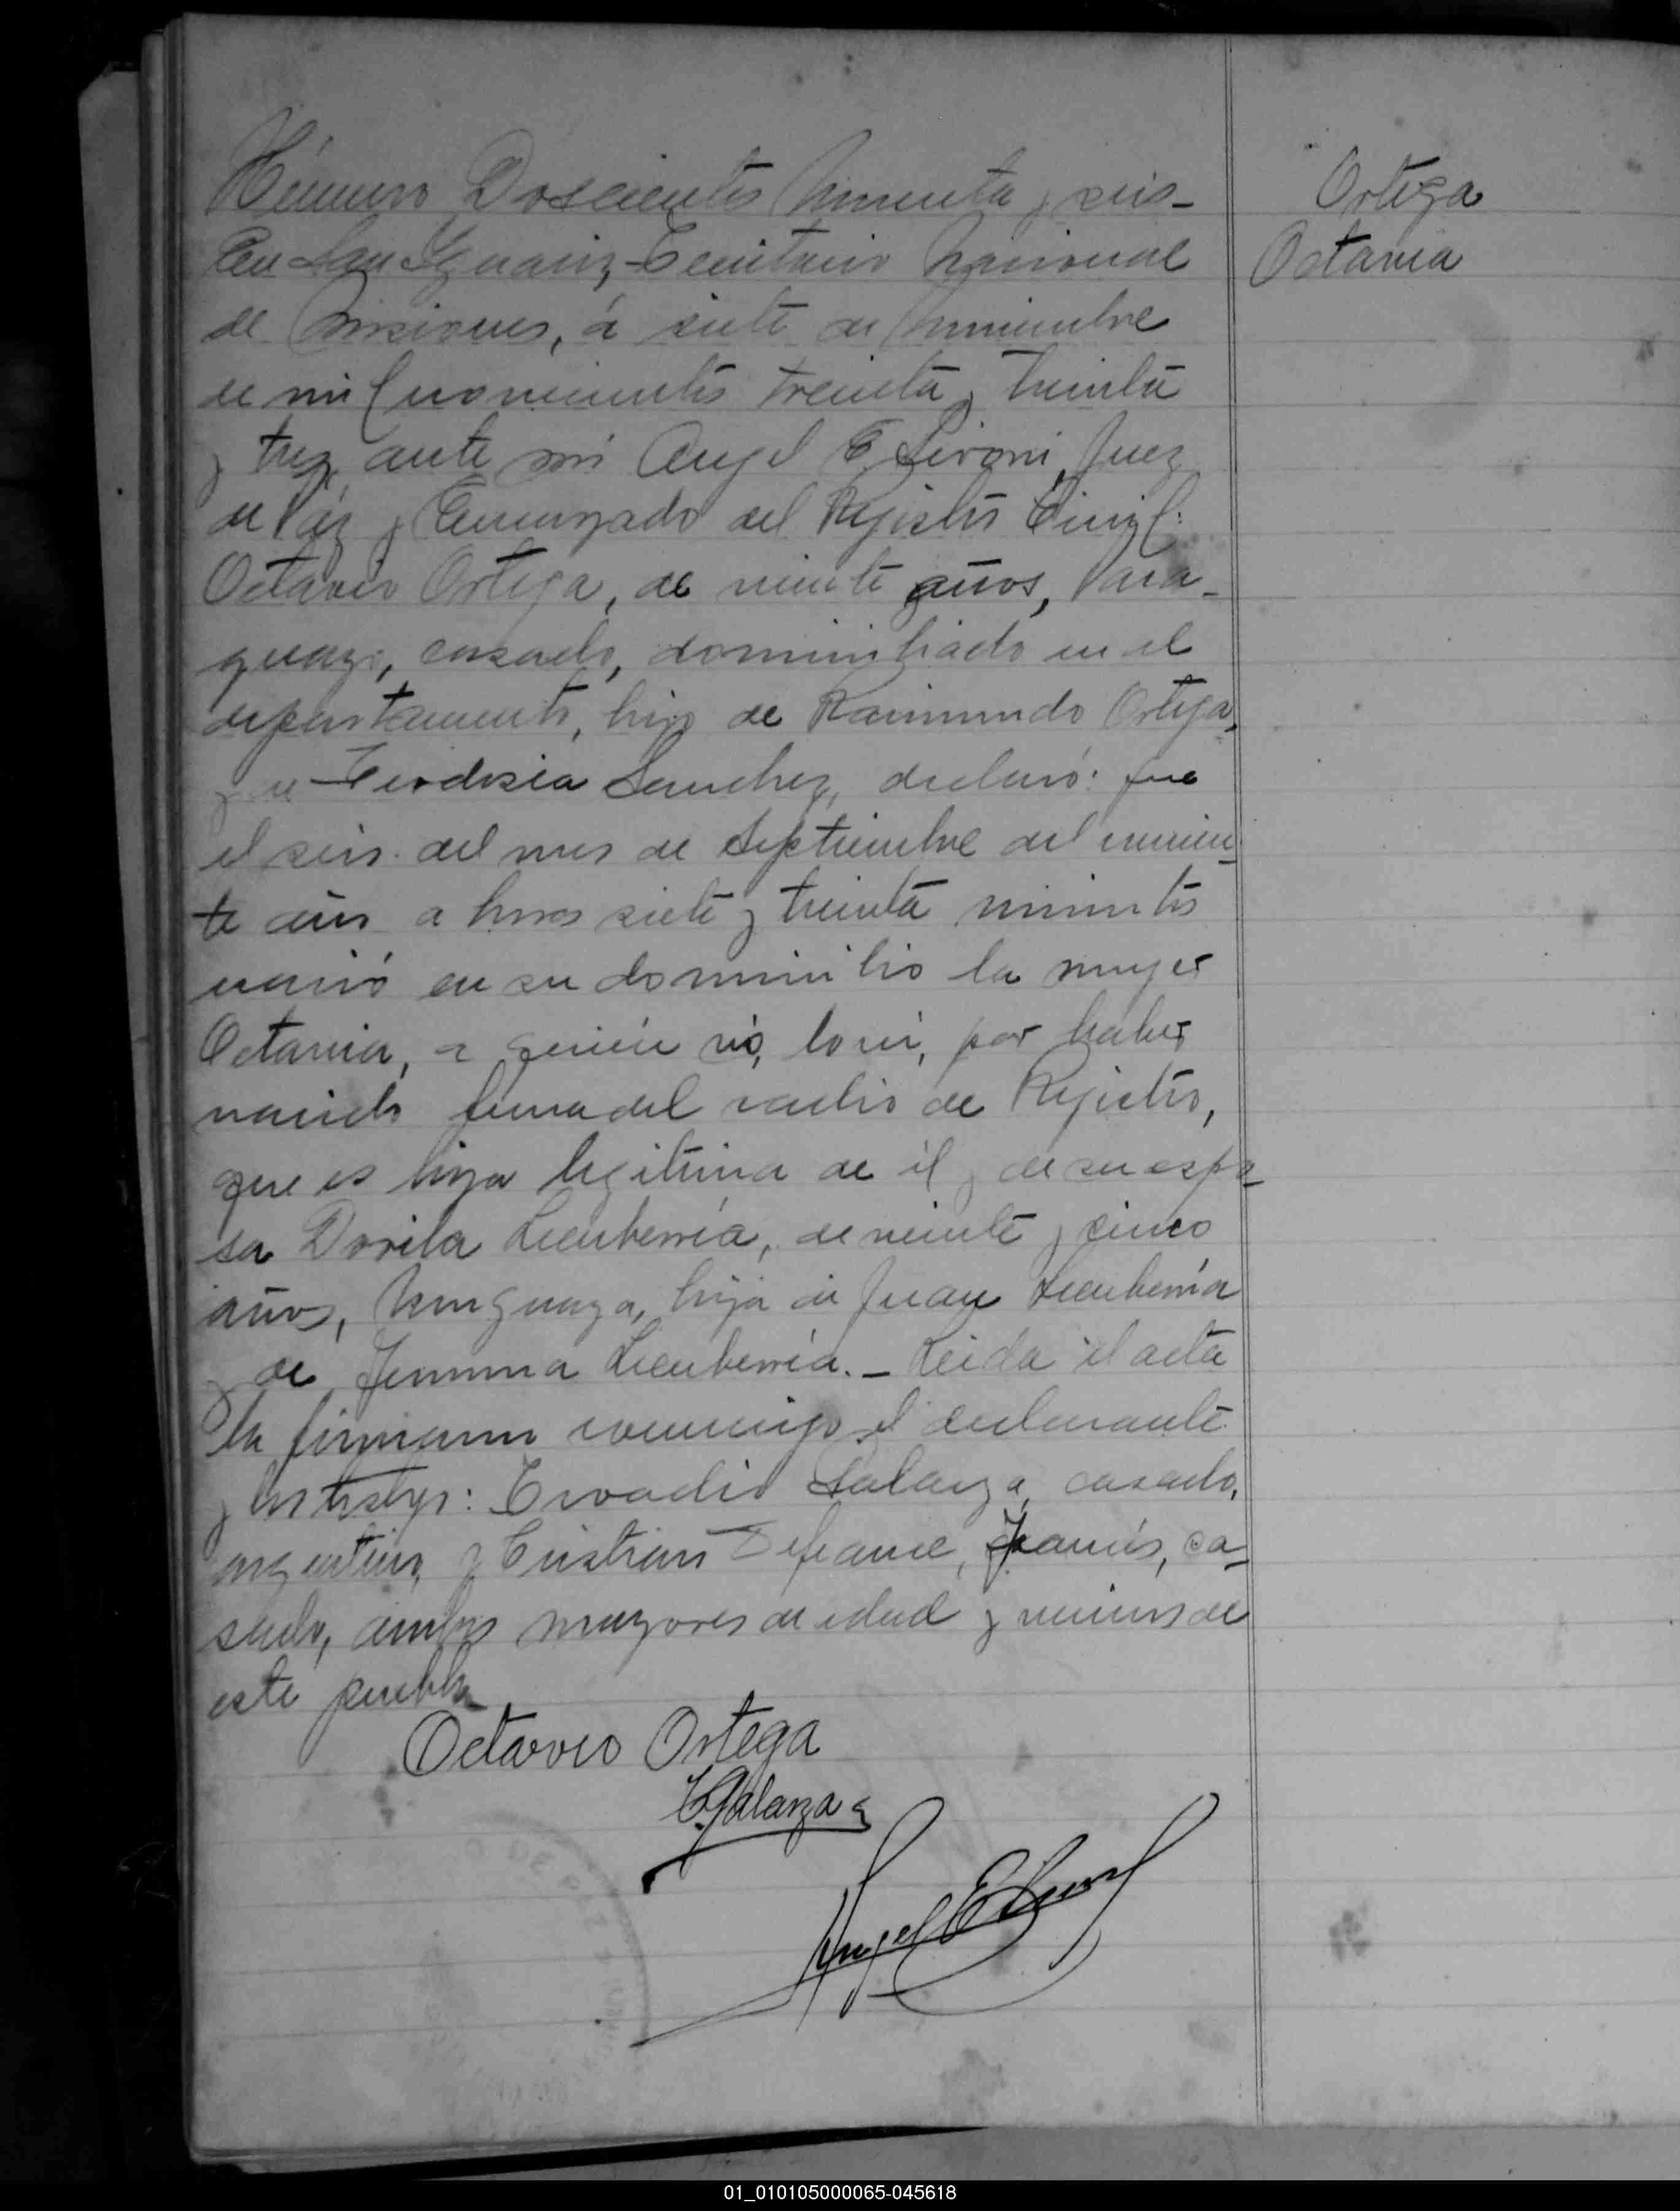 Número Doscientos Noventa y seis_
En San Ignacio, Territorio Nacional
de Misiones, á siete de Noviembre
de mil novecientos treinta y treinta
y tres, ante mi Angel E. Sironi, Juez
de Páz y Encargado del Rejistro Civil:
Octavio Ortega, de veinte años, Para_
guayo, casado, domiciliado en el
departamento, hijo de Raimundo Ortega,
y de Teodosia Sanchez, declaró: que
el seis del mes de Septiembre del corrien_
te año a horas siete y treinta minutos
nació en su domicilio la mujer
Octavia, a quién no, la ví, por haber
nacido fuera del radio de Rejistro,
que es hija legitima de él y de su espo_
sa Dorila Lecuberría, de veinte y cinco
años, Uruguaya, hija de Juan Lecuberría
y de Lecuberría._ Leida el acta
la firmaron conmigo el declarante
y los testigos: Galarza, casado,
argentino, y Cristian Defrance, francés, ca_
sado, ambos mayores de edad y vecinos de
este pueblo_
Octavio Ortega
Galarza
Angel E Sironi
Ortega
Octavia
01_010105000065-045618